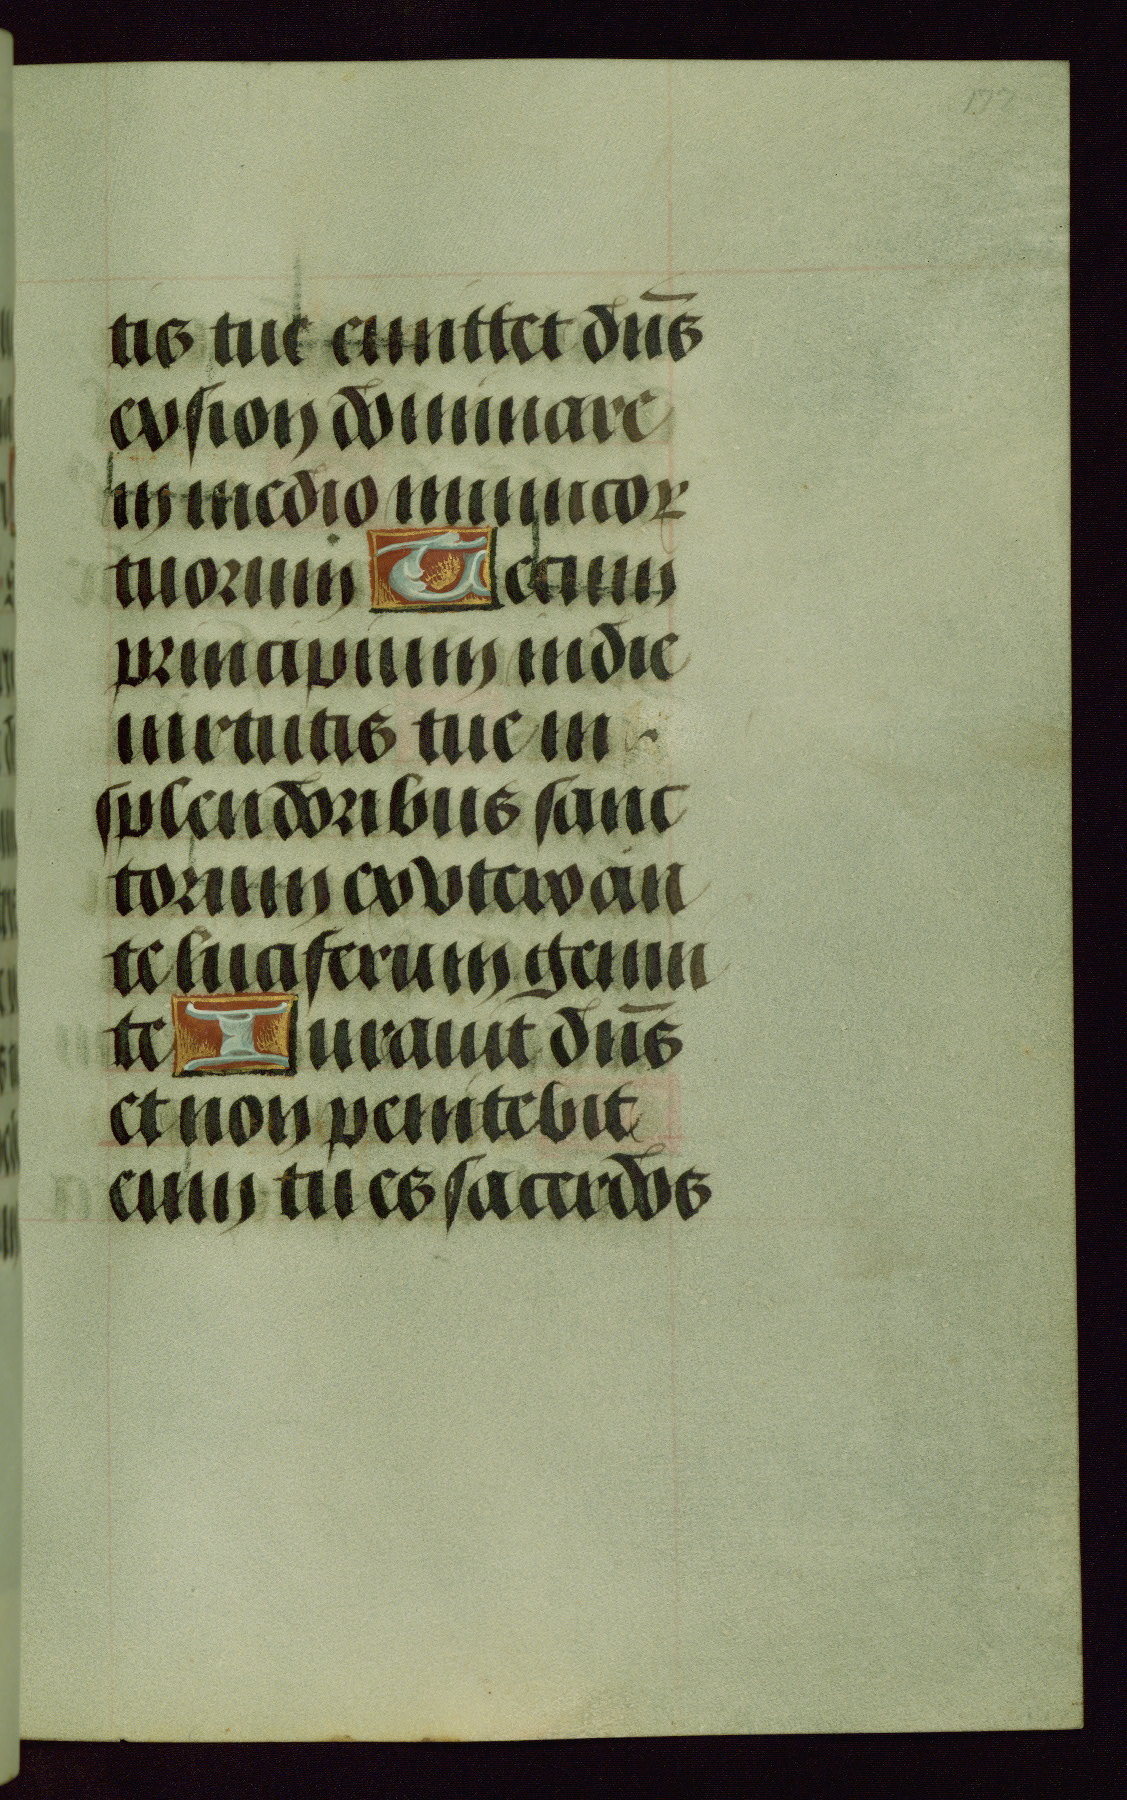 177
tis tue emittet dn̄s
ex sion dominare
in medio inimicor
tuorum Tecum
principium in die
uirtutis tue in
splendoribus sanc
torum ex vtero an
te luciferum genui
te Iurauit dn̄s
et non penitebit
eum tu es sacerdos